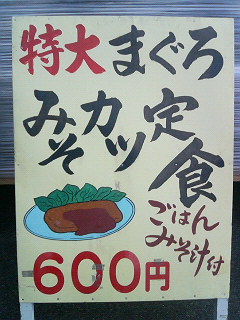 特大まぐろ
みそカツ定食
ごはん
みそ汁付
600円